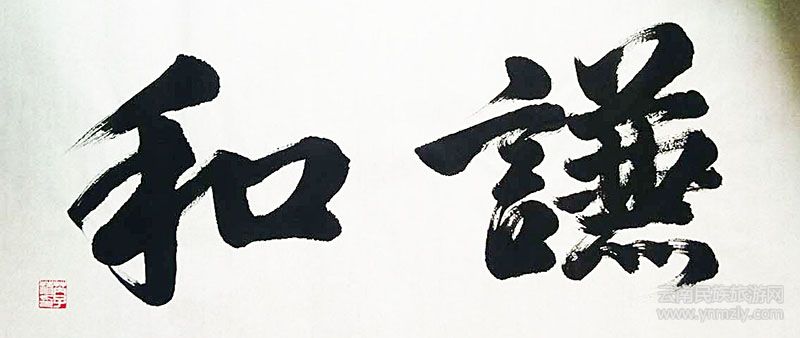 謙和
云南民族旅游网
www.ynmzly.com